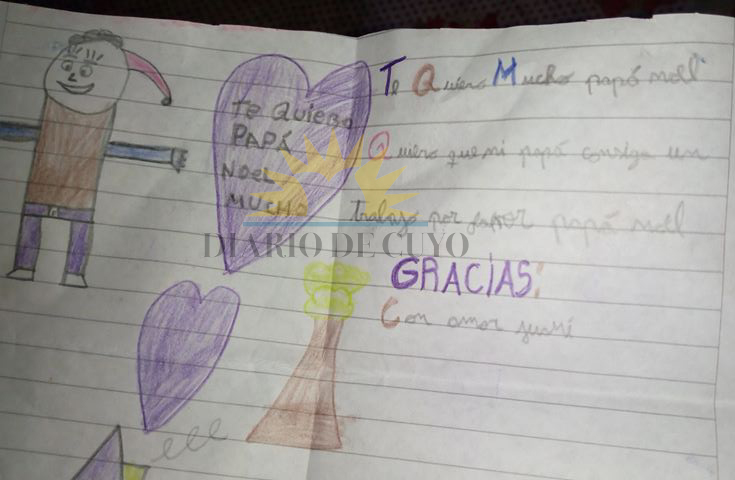 Te Quiero Mucho papá noel
TE QUIERO
PAPÁ
NOEL
MUCHO
Quiero que mi papá consiga un
trabajo por favor papá noel
DIARIO DE CUYO
GRACIAS:
Con amor
eee